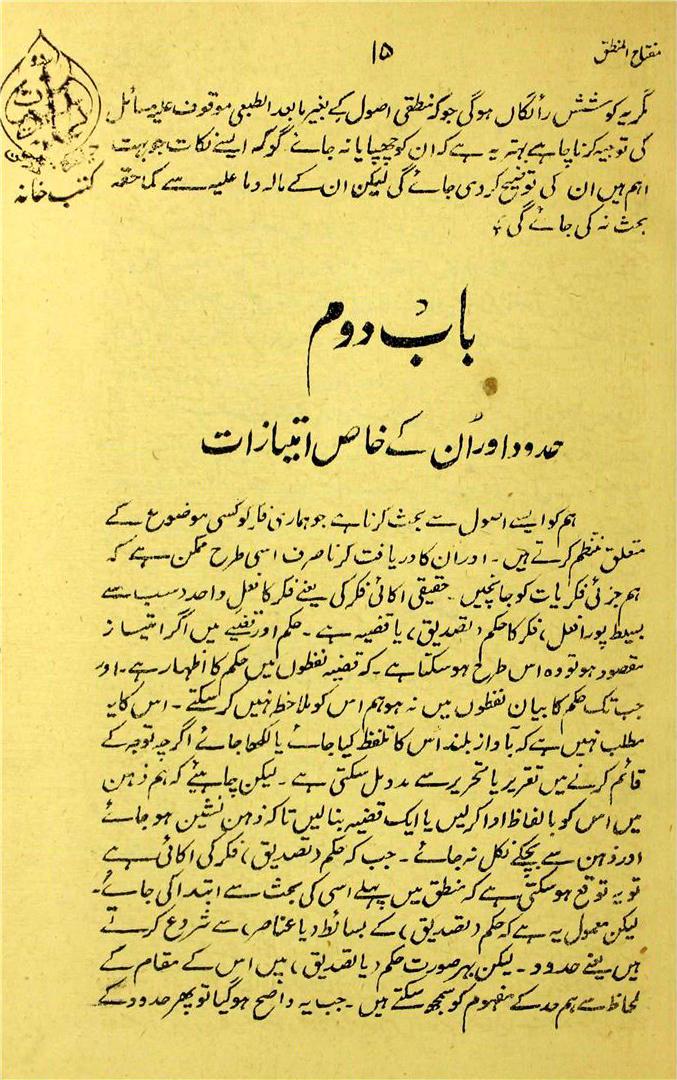 مفتاح المنطق
۱۵
کتب خانہ
مگر یہ کوشش رائگاں ہوگی جو کہ منطقی اصول کے بغیر مابعد الطبعی موقوف علیہ مسائل
کی توجیہ کرنا چاہے بہتر یہ ہے کہ ان کو چھپایا نہ جائے گو کہ ایسے نکات جو بہت
اہم ہیں ان کی توضیح کر دی جائے گی لیکن ان کے مالہ وما علیہ سے کماحقہ
بحث نہ کی جائے گی ؛
باب دوم
حدود اور اُن کے خاص امتیازات
ہم کو ایسے اصول سے بحث کرنا ہے جو ہماری فکر کو کسی موضوع کے
متعلق منتظم کرتے ہیں ۔ اور ان کا دریافت کرنا صرف اسی طرح ممکن ہے کہ
ہم جزئی فکریات کو جانچیں ۔ حقیقی اکائی فکر کی یعنے فکر کا فعل واحد (سب سے
بسیط پورا فعل) فکر کا حکم (تصدیق) یا قضیہ ہے ۔ حکم اور قضیے میں اگر امتیاز
مقصود ہو تو وہ اس طرح ہو سکتا ہے ۔ کہ قضیہ لفظوں میں حکم کا اظہار ہے ۔ اور
جب تک حکم کا بیان لفظوں میں نہ ہو ہم اس کو ملاحظہ نہیں کر سکتے ۔ اس کا یہ
مطلب نہیں ہے کہ بآواز بلند اُس کا تلفظ کیا جائے یا لکھا جائے اگرچہ توجہ کے
قائم کرنے میں تقریر یا تحریر سے مدد مل سکتی ہے ۔ لیکن چاہیئے کہ ہم ذہن
میں اس کو بالفاظ ادا کرلیں یا ایک قضیہ بنا لیں تاکہ ذہن نشین ہو جائے
اور ذہن سے بچکے نکل نہ جائے ۔ جب کہ حکم (تصدیق) فکر کی اکائی ہے
تو یہ توقع ہو سکتی ہے کہ منطق میں پہلے اسی کی بحث سے ابتدا کی جائے ۔
لیکن معمول یہ ہے کہ حکم (تصدیق) کے بسائط (یا عناصر) سے شروع کرتے
ہیں یعنے حدود ۔ لیکن بہر صورت حکم (یا تصدیق) میں اس کے مقام کے
لحاظ سے ہم حد کے مفہوم کو سمجھ سکتے ہیں ۔ جب یہ واضح ہوگیا تو پھر حدود کے